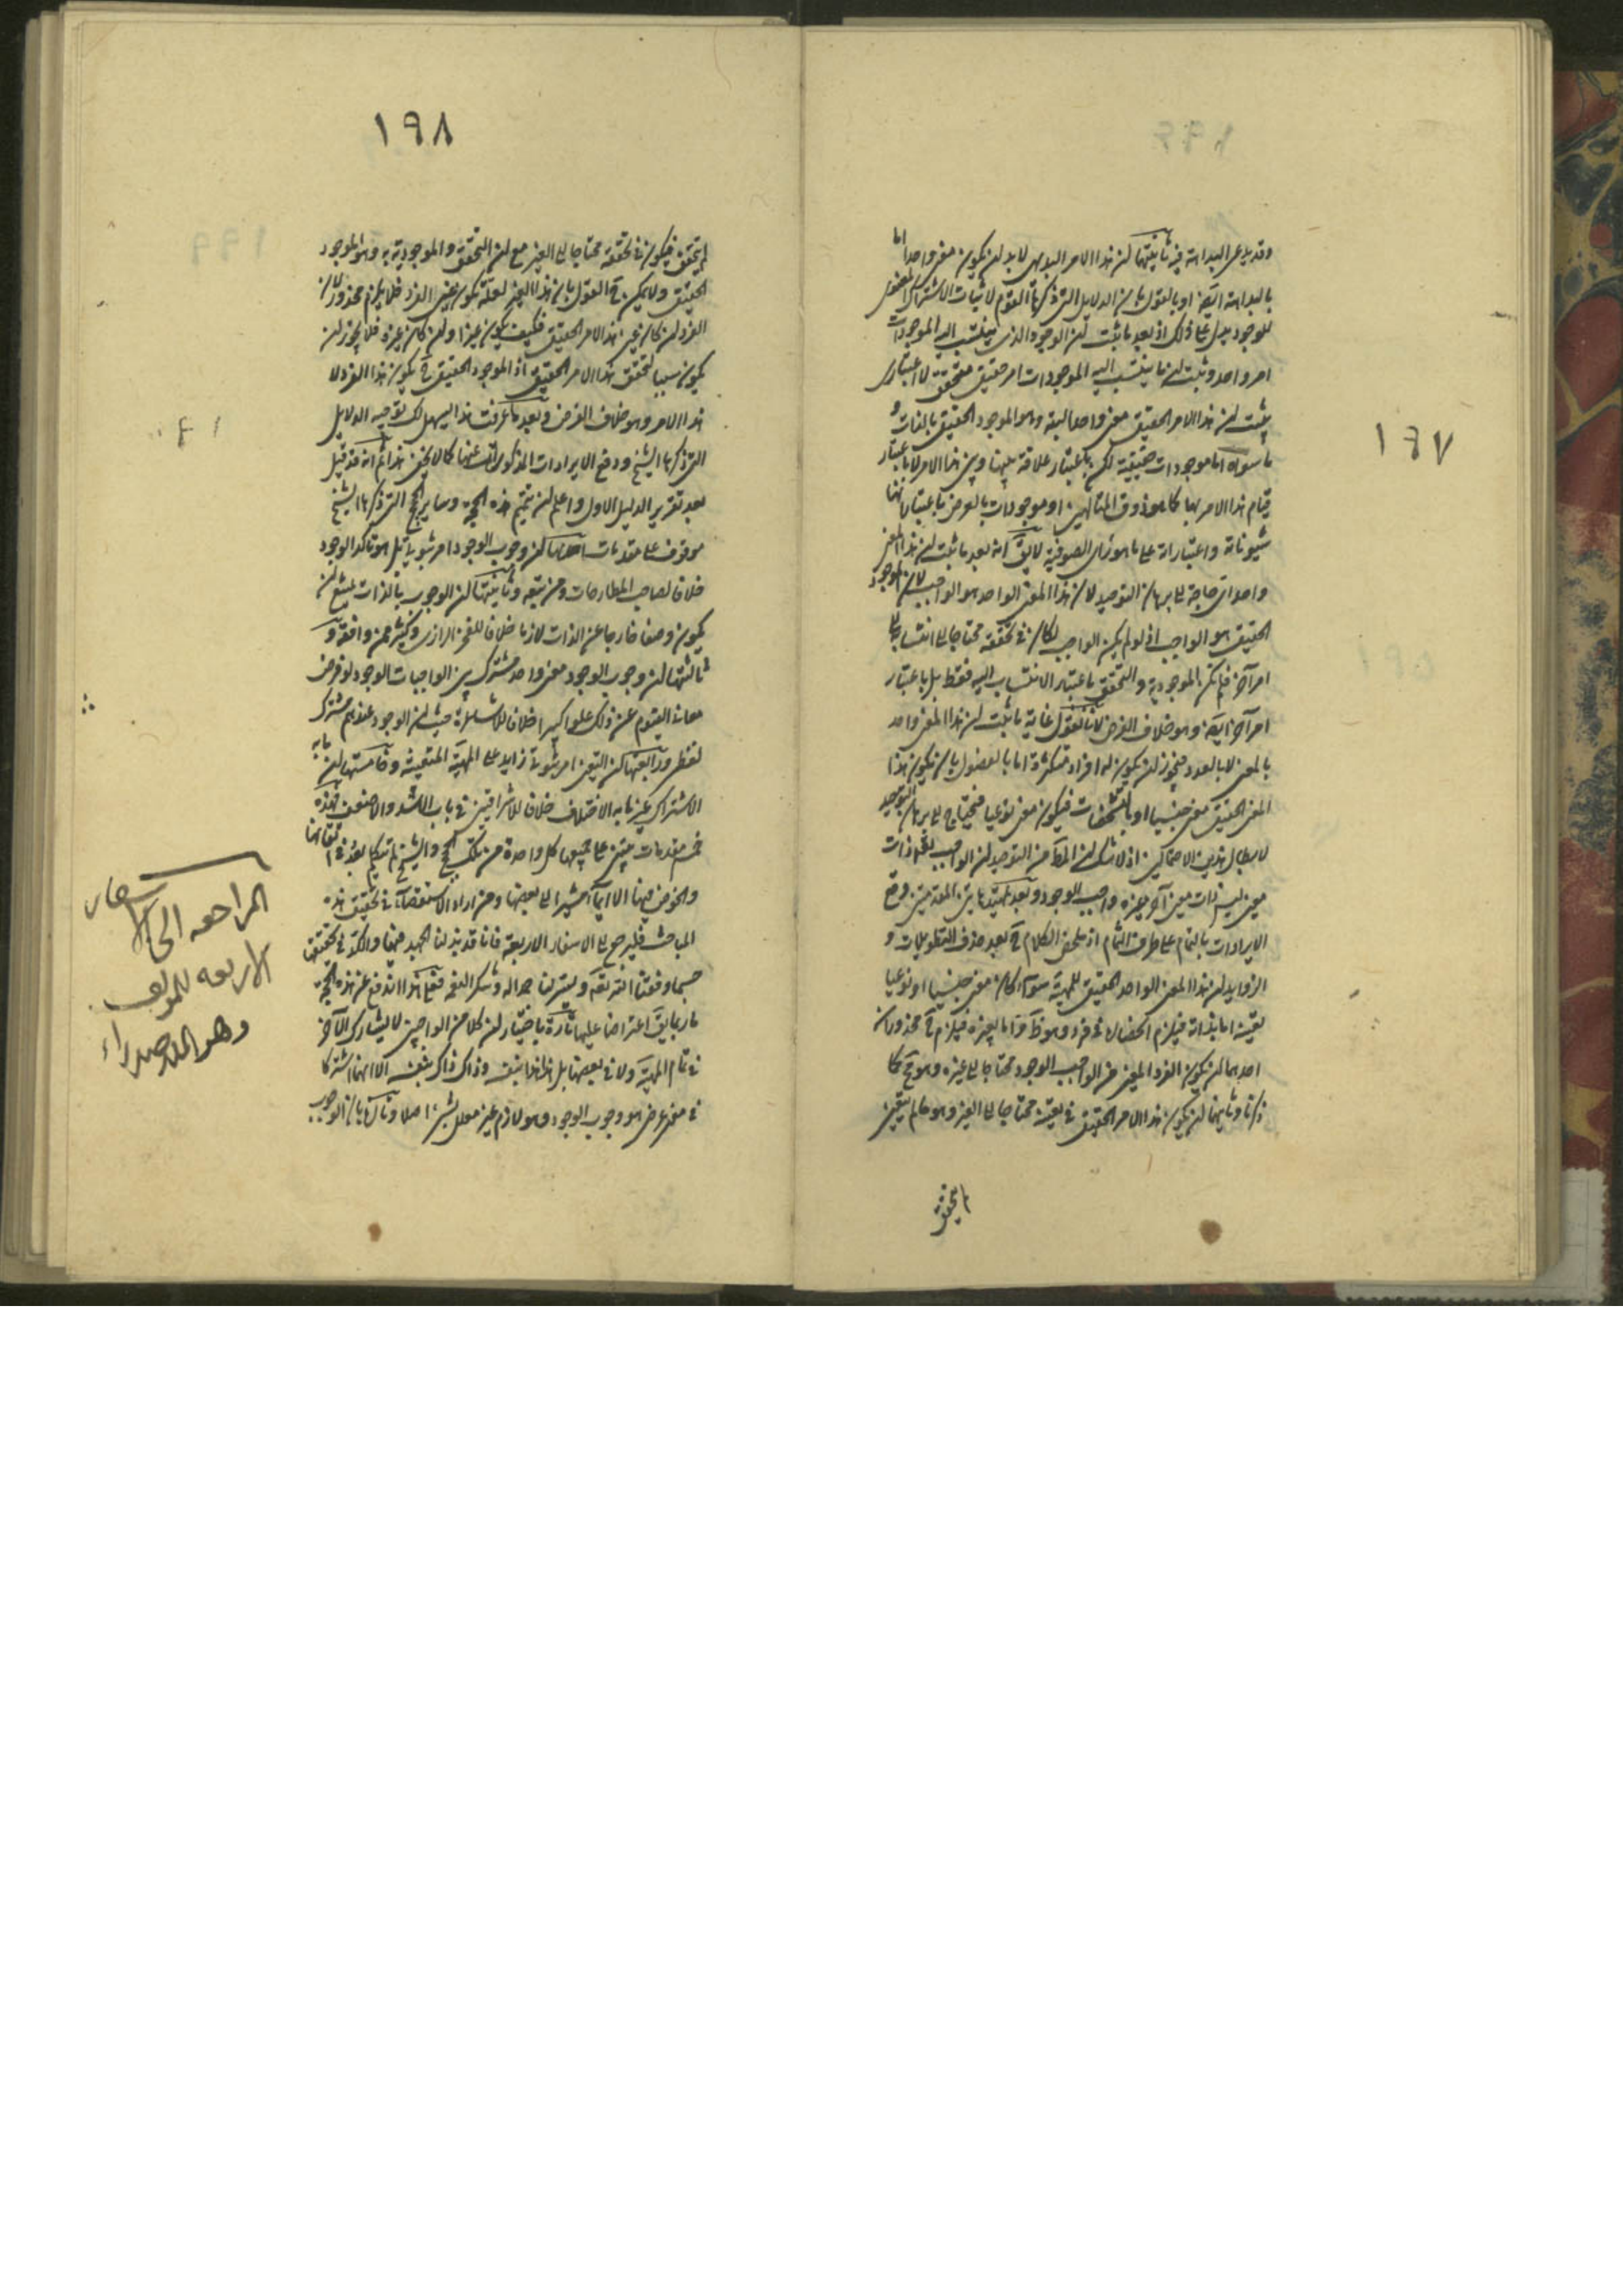 ١٩٧
وقد يدعى البداهة فيه ثانيتها ان هذا الامر البديهى لابد ان يكون معنى واحدا اما
بالبداهة ايضا او بالقول بان الدلايل التى ذكرها القوم لاثبات الاشتراك المعنوى
للوجود يدل على ذلك اذ بعد ما ثبت ان الوجود الذى ينتسب اليه الموجودات
امر واحد وثبت ان ما ينتسب اليه الموجودات امر حقيقى متحقق لا اعتبارى
يثبت ان هذا الامر الحقيقى معنى واحد البتة وهو الموجود الحقيقى بالذات و
ما سواه اما موجودات حقيقية لكن باعتبار علاقة بينها وبين هذا الامر لا باعتبار
قيام هذا الامر بها كما هو ذوق المتالهين او موجودات بالعرض باعتبار انها
شيوناته واعتباراته على ما هو راى الصوفية لا يق انه بعد ما ثبت ان هذا المعنى
واحد اى حاجة الى برهان التوحيد لان هذا المعنى الواحد هو الواجب لان الموجود
الحقيقى هو الواجب اذ لو لم يكن الواجب لكان فى تحققه محتاجا الى انتسابه الى
امر آخر فلم تكن الموجودية والتحقق باعتبار الانتساب اليه فقط بل باعتبار
امر آخر ايضا وهو خلاف الفرض لانا نقول غاية ما ثبت ان هذا المعنى واحد
بالمعنى لا بالعدد فيجوز ان يكون له افراد متكثرة اما بالفصول بان يكون هذا
المعنى الحقيقى معنى جنسيا او بالتشخصات فيكون معنى نوعيا فيحتاج الى برهان التوحيد
لابطال هذين الاحتمالين اذ لا شك ان المط من التوحيد ان الواجب بالذات ذات
معين ليس ذات معين آخر غيره واجب الوجود وبعد تمهيد هاتين المقدمتين دفع
الايرادات بالتمام على طرف الثمام اذ ملخص الكلام ح بعد حذف التطويلات و
الزوايد ان هذا المعنى الواحد الحقيقى للمهية سواء كان معنى جنسيا او نوعيا
تعينه اما بذاته فيلزم انحصاره فى فرد وهو ظ واما بغيره فيلزم ح محذوران
احدهما ان يكون الفرد المعين من الواجب الوجود محتاجا الى غيره وهو مح كما
ذكرنا وثانيهما ان يكون هذا الامر الحقيقى فى تعينه محتاجا الى الغير وهو ما لم يتعين
لم يتحقق
١٩٨
لم يتحقق فيكون فى تحققه محتاجا الى الغير مع ان التحقق والموجودية به وهو الموجود
الحقيقى ولا يمكن ح القول بان هذا الغير لعله يكون عين الفرد فلا يلزم محذور لان
الفرد ان كان عين هذا الامر الحقيقى فكيف يكون غيرا وان كان غيره فلا يجوز ان
يكون سببا لتحقق هذا الامر الحقيقى اذ الموجود الحقيقى ح يكون هذا الفرد لا
هذا الامر وهو خلاف الفرض وبعد ما عرفت هذا يسهل لك توجيه الدلايل
التى ذكرها الشيخ ودفع الايرادات المذكورات عنها كما لا يخفى هذا ثم انه قد قيل
بعد تقرير الدليل الاول واعلم ان تتميم هذه الحجة وساير الحجج التى ذكرها الشيخ
موقوف على مقدمات احدها ان وجوب الوجود امر ثبوتى بل هو تاكد الوجود
خلافا لصاحب المطارحات ومن تبعه وثانيتها ان الوجوب بالذات يمتنع ان
يكون وصفا خارجا عن الذات لازما خلافا للفخر الرازى وكثير ممن وافقه و
ثالثتها ان وجوب الوجود معنى واحد مشترك بين الواجبات الوجود لو فرض
معاذ القيوم عن ذلك علوا كبيرا خلافا للاشاعرة حيث ان الوجود عندهم مشترك
لفظى ورابعتها ان التعين امر ثبوتى زايد على المهية المتعينة وخامستها ان ما به
الاشتراك غير ما به الاختلاف خلافا للاشراقيين فى باب الاشد والاضعف فهذه
خمس مقدمات يبتنى على جميعها كل واحدة من تلك الحجج والشيخ لم يتكلم بعد فى اتقانها
والخوض فيها الا ايماء يشير الى بعضها ومن اراد الاستقصاء فى تحقيق هذه
المباحث فليرجع الى الاسفار الاربعة فانا قد بذلنا الجهد فيها والكد فى تحقيقها
حسبما وفقنا الله تعه ويسر لنا حمدا له وشكرا لنعمه فعلى هذا اندفع عن هذه الحجة
ما ربما يق اعتراضا عليها تارة باختيار ان كلا من الواجبين لا يشارك الآخر
فى تمام المهية ولا فى بعضها بل هذا هذا بنفسه وذاك ذاك بنفسه الا انهما اشتركا
فى معنى عرضى هو وجوب الوجود وهو لازم غير معلل بشئ اصلا وتارة بان الوجوب
المراجعه الى الاسفار
الاربعه للمولف
وهو الملا صدراء